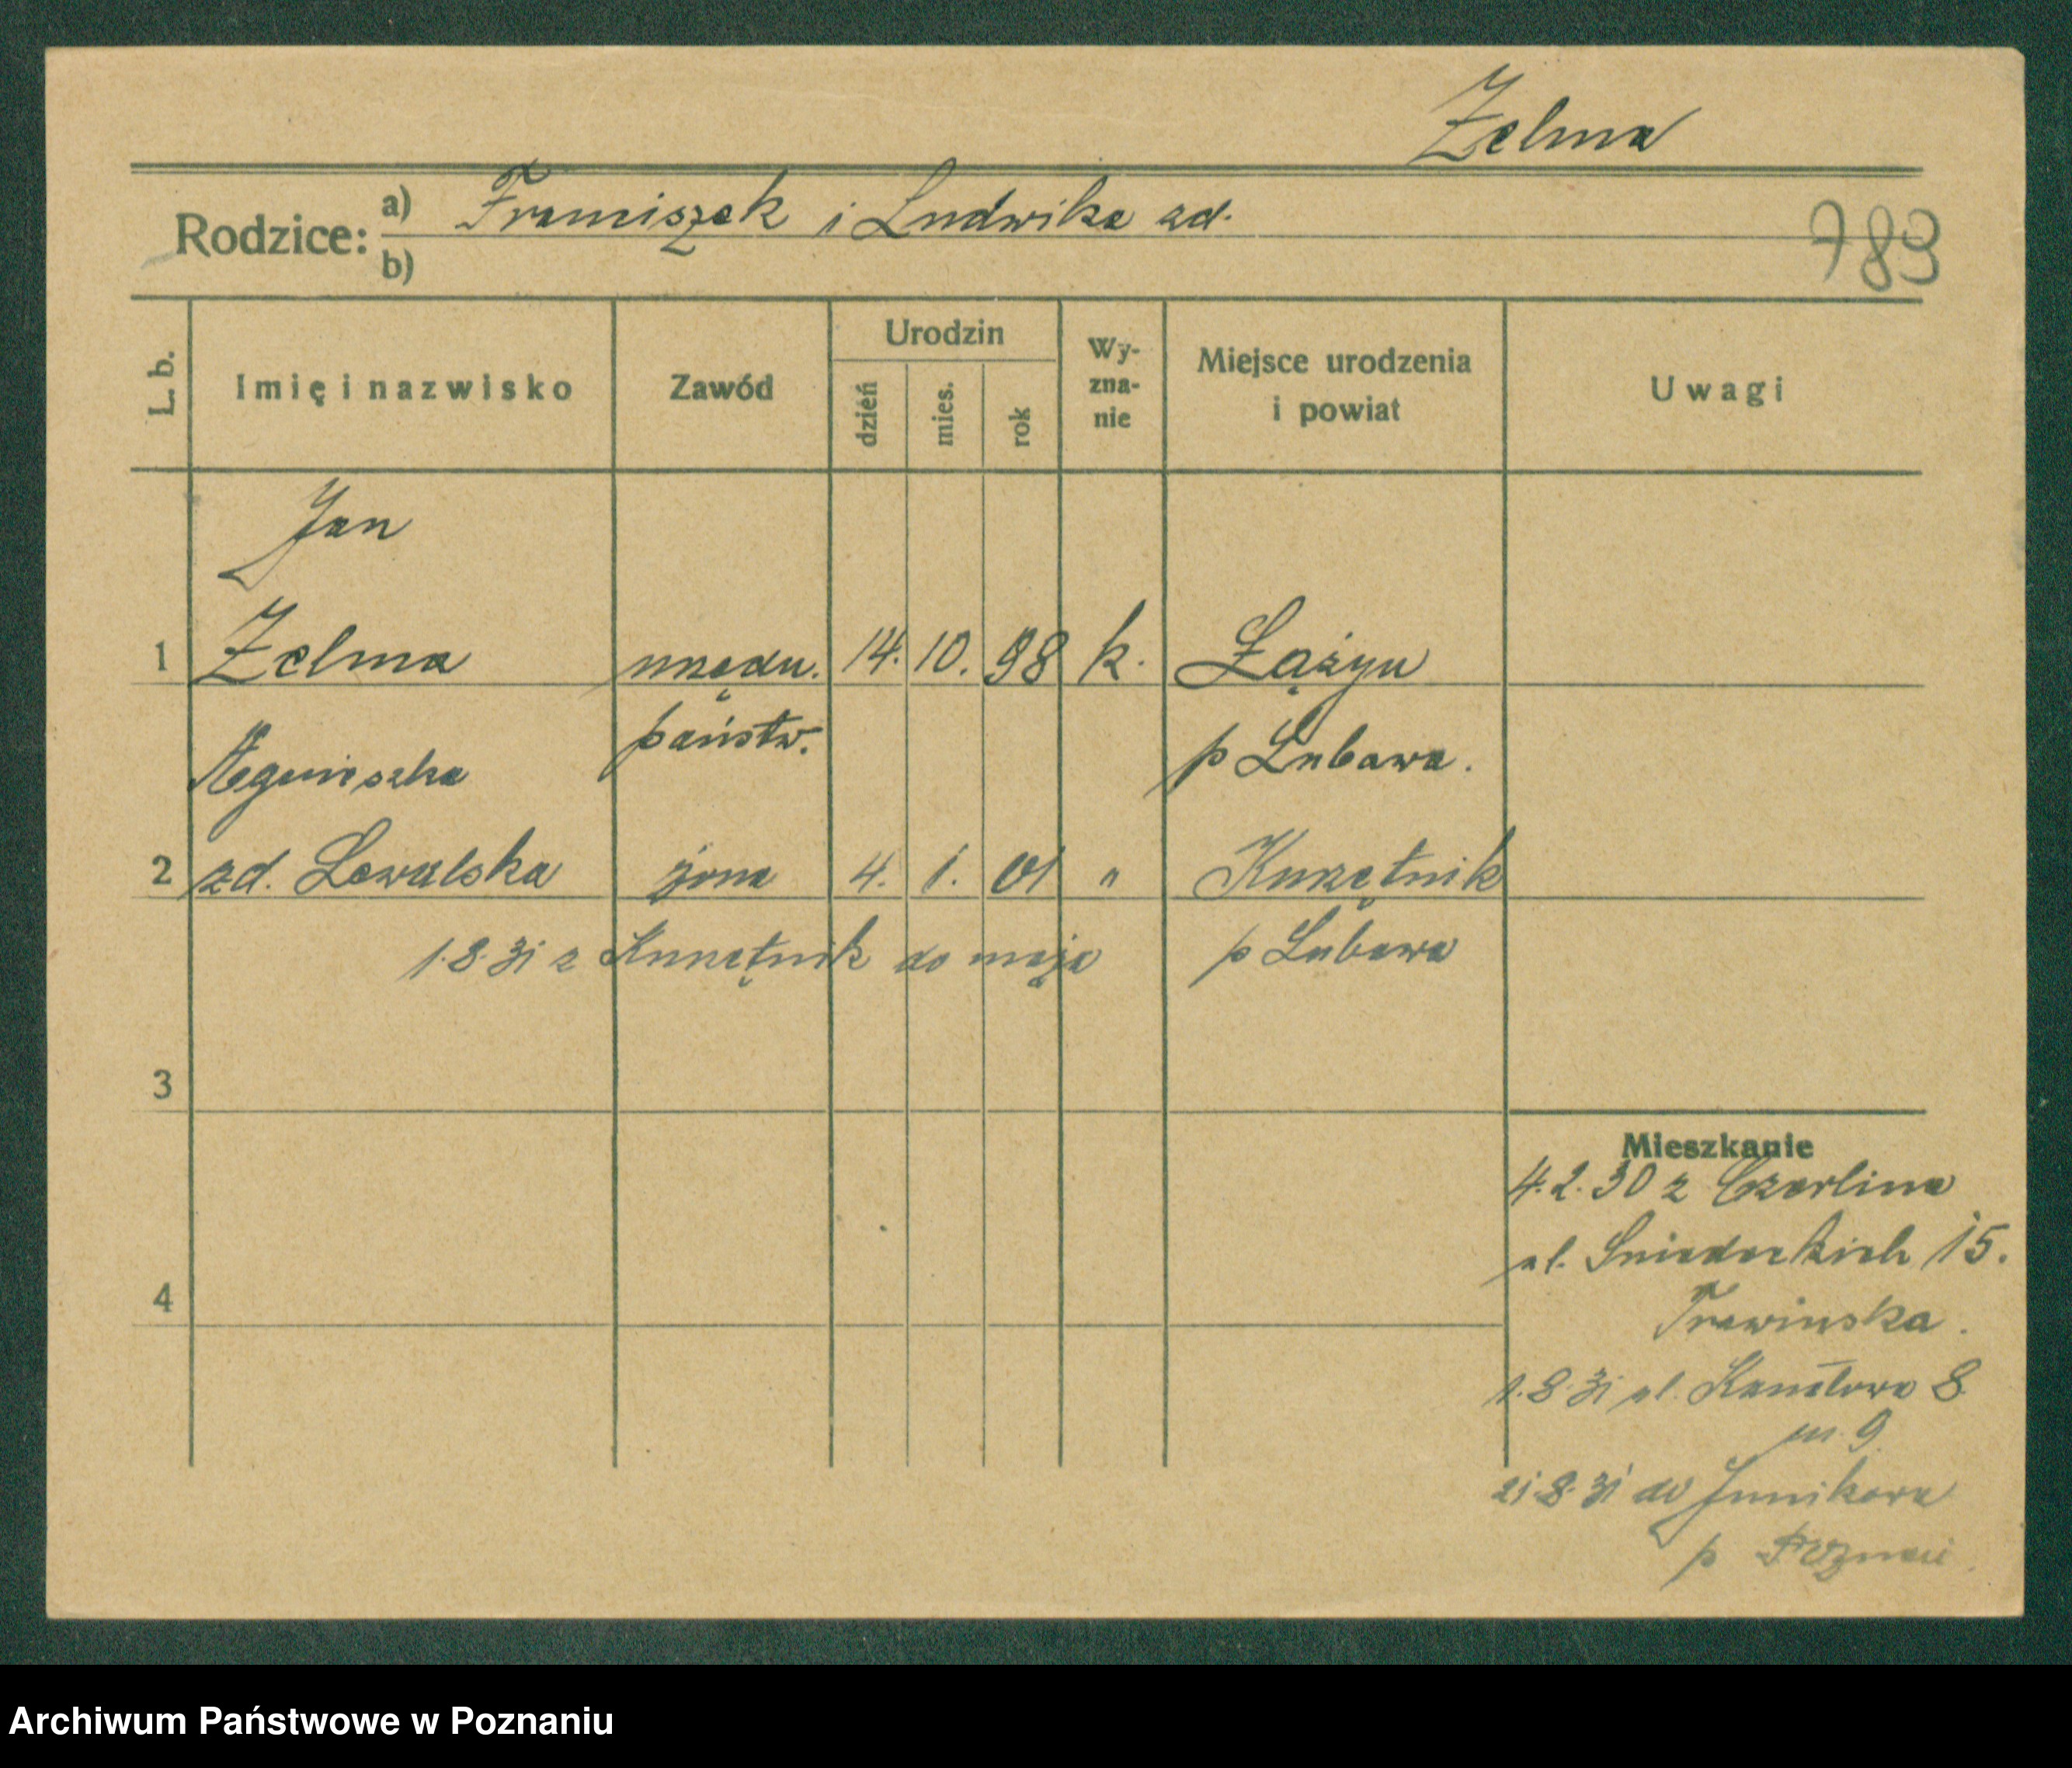 Zelma
Rodzice: a) Franciszek i Ludwika zd.
b)
783
L. b.
Imię i nazwisko
Zawód
Urodzin
dzień
mies.
rok
Wy-
zna-
nie
Miejsce urodzenia
i powiat
Uwagi
Jan
1 Zelma urzędn. 14. 10. 98 k. Łążyn
państw. p Lubawa.
Agnieszka
2 zd. Lewalska żona 4. 1. 01 " Kurzętnik
1.8.31 z Kurzętnik do męża p Lubawa
3
4
Mieszkanie
4.2.30 z Czerlina
ul. Sniadeckich 15.
Trawinska.
1.8.31 ul. Kanałowa 8
m. 9.
21.8.31 do Junikowa
p Poznań
Archiwum Państwowe w Poznaniu